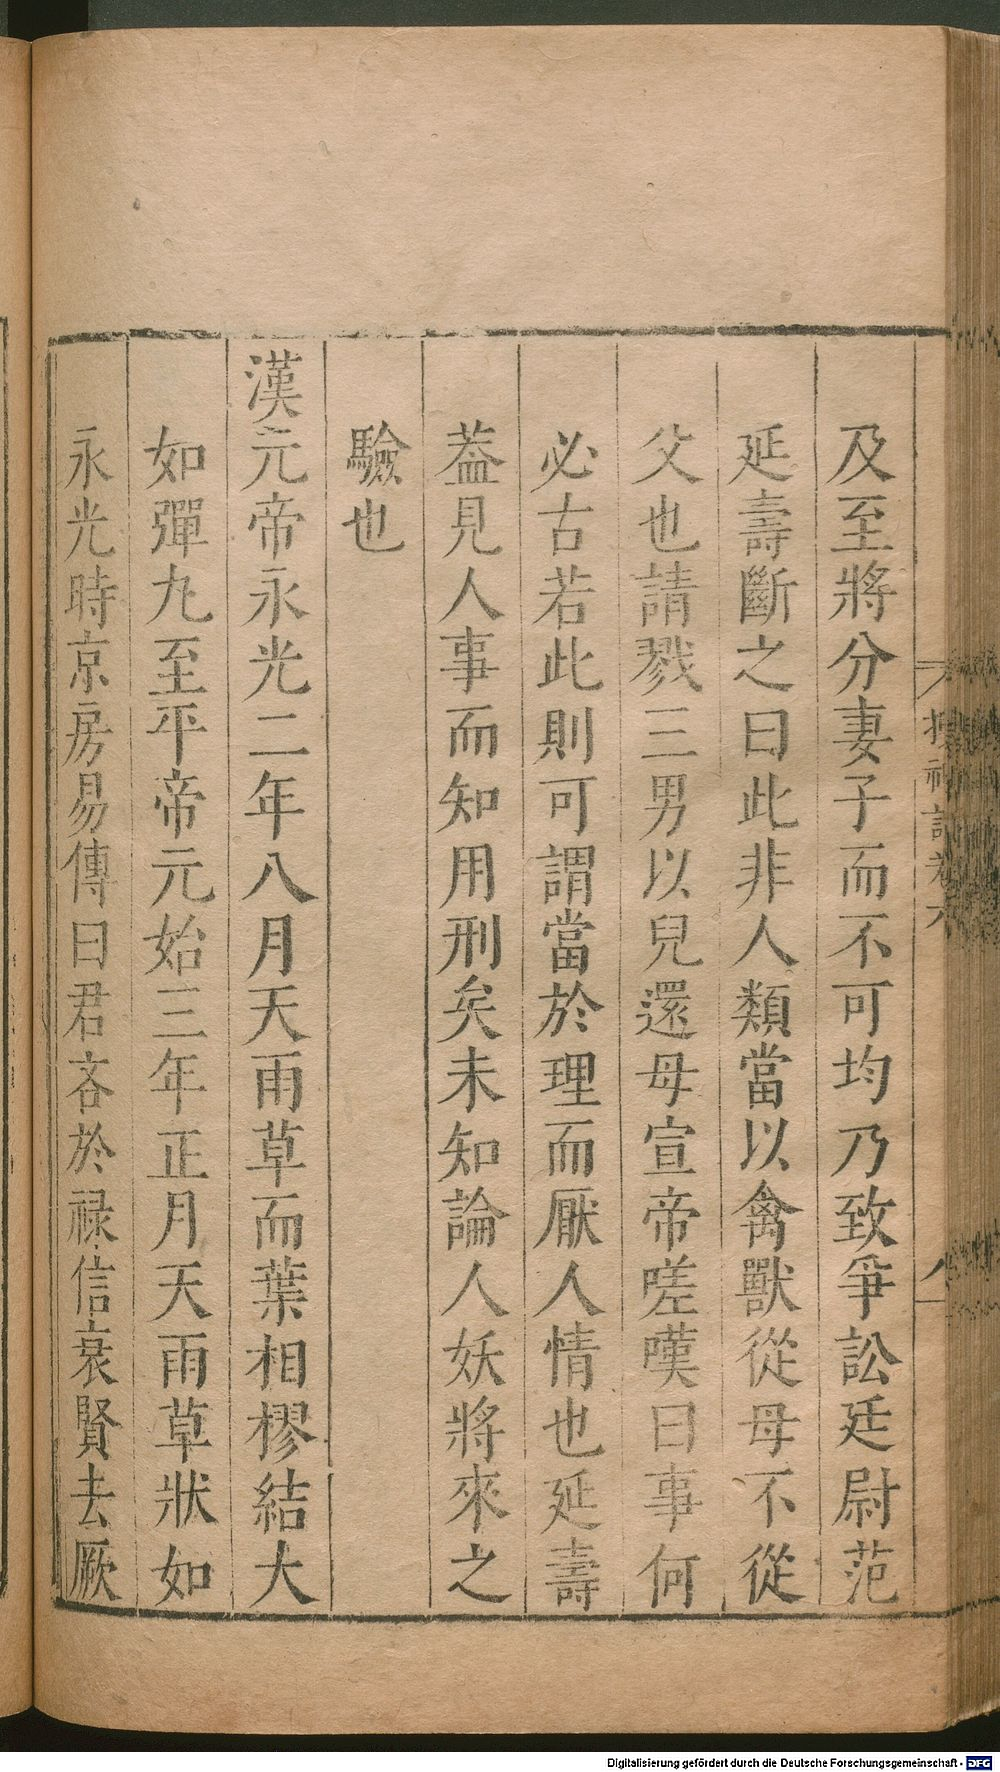 及至將分妻子而不可均乃致爭訟廷尉范
延壽斷之曰此非人類當以禽獸從母不從
父也請戮三男以兒還母宣帝嗟嘆曰事何
必古若此則可謂當於理而厭人情也延壽
葢見人事而知用刑矣未知論人妖將來之
驗也
漢元帝永光二年八月天雨草而葉相樛結大
如彈丸至平帝元始三年正月天雨草狀如
永光時京房易傳曰君吝於祿信衰賢去厥
搜神記卷六
八
Digitalisierung gefördert durch die Deutsche Forschungsgemeinschaft - DFG